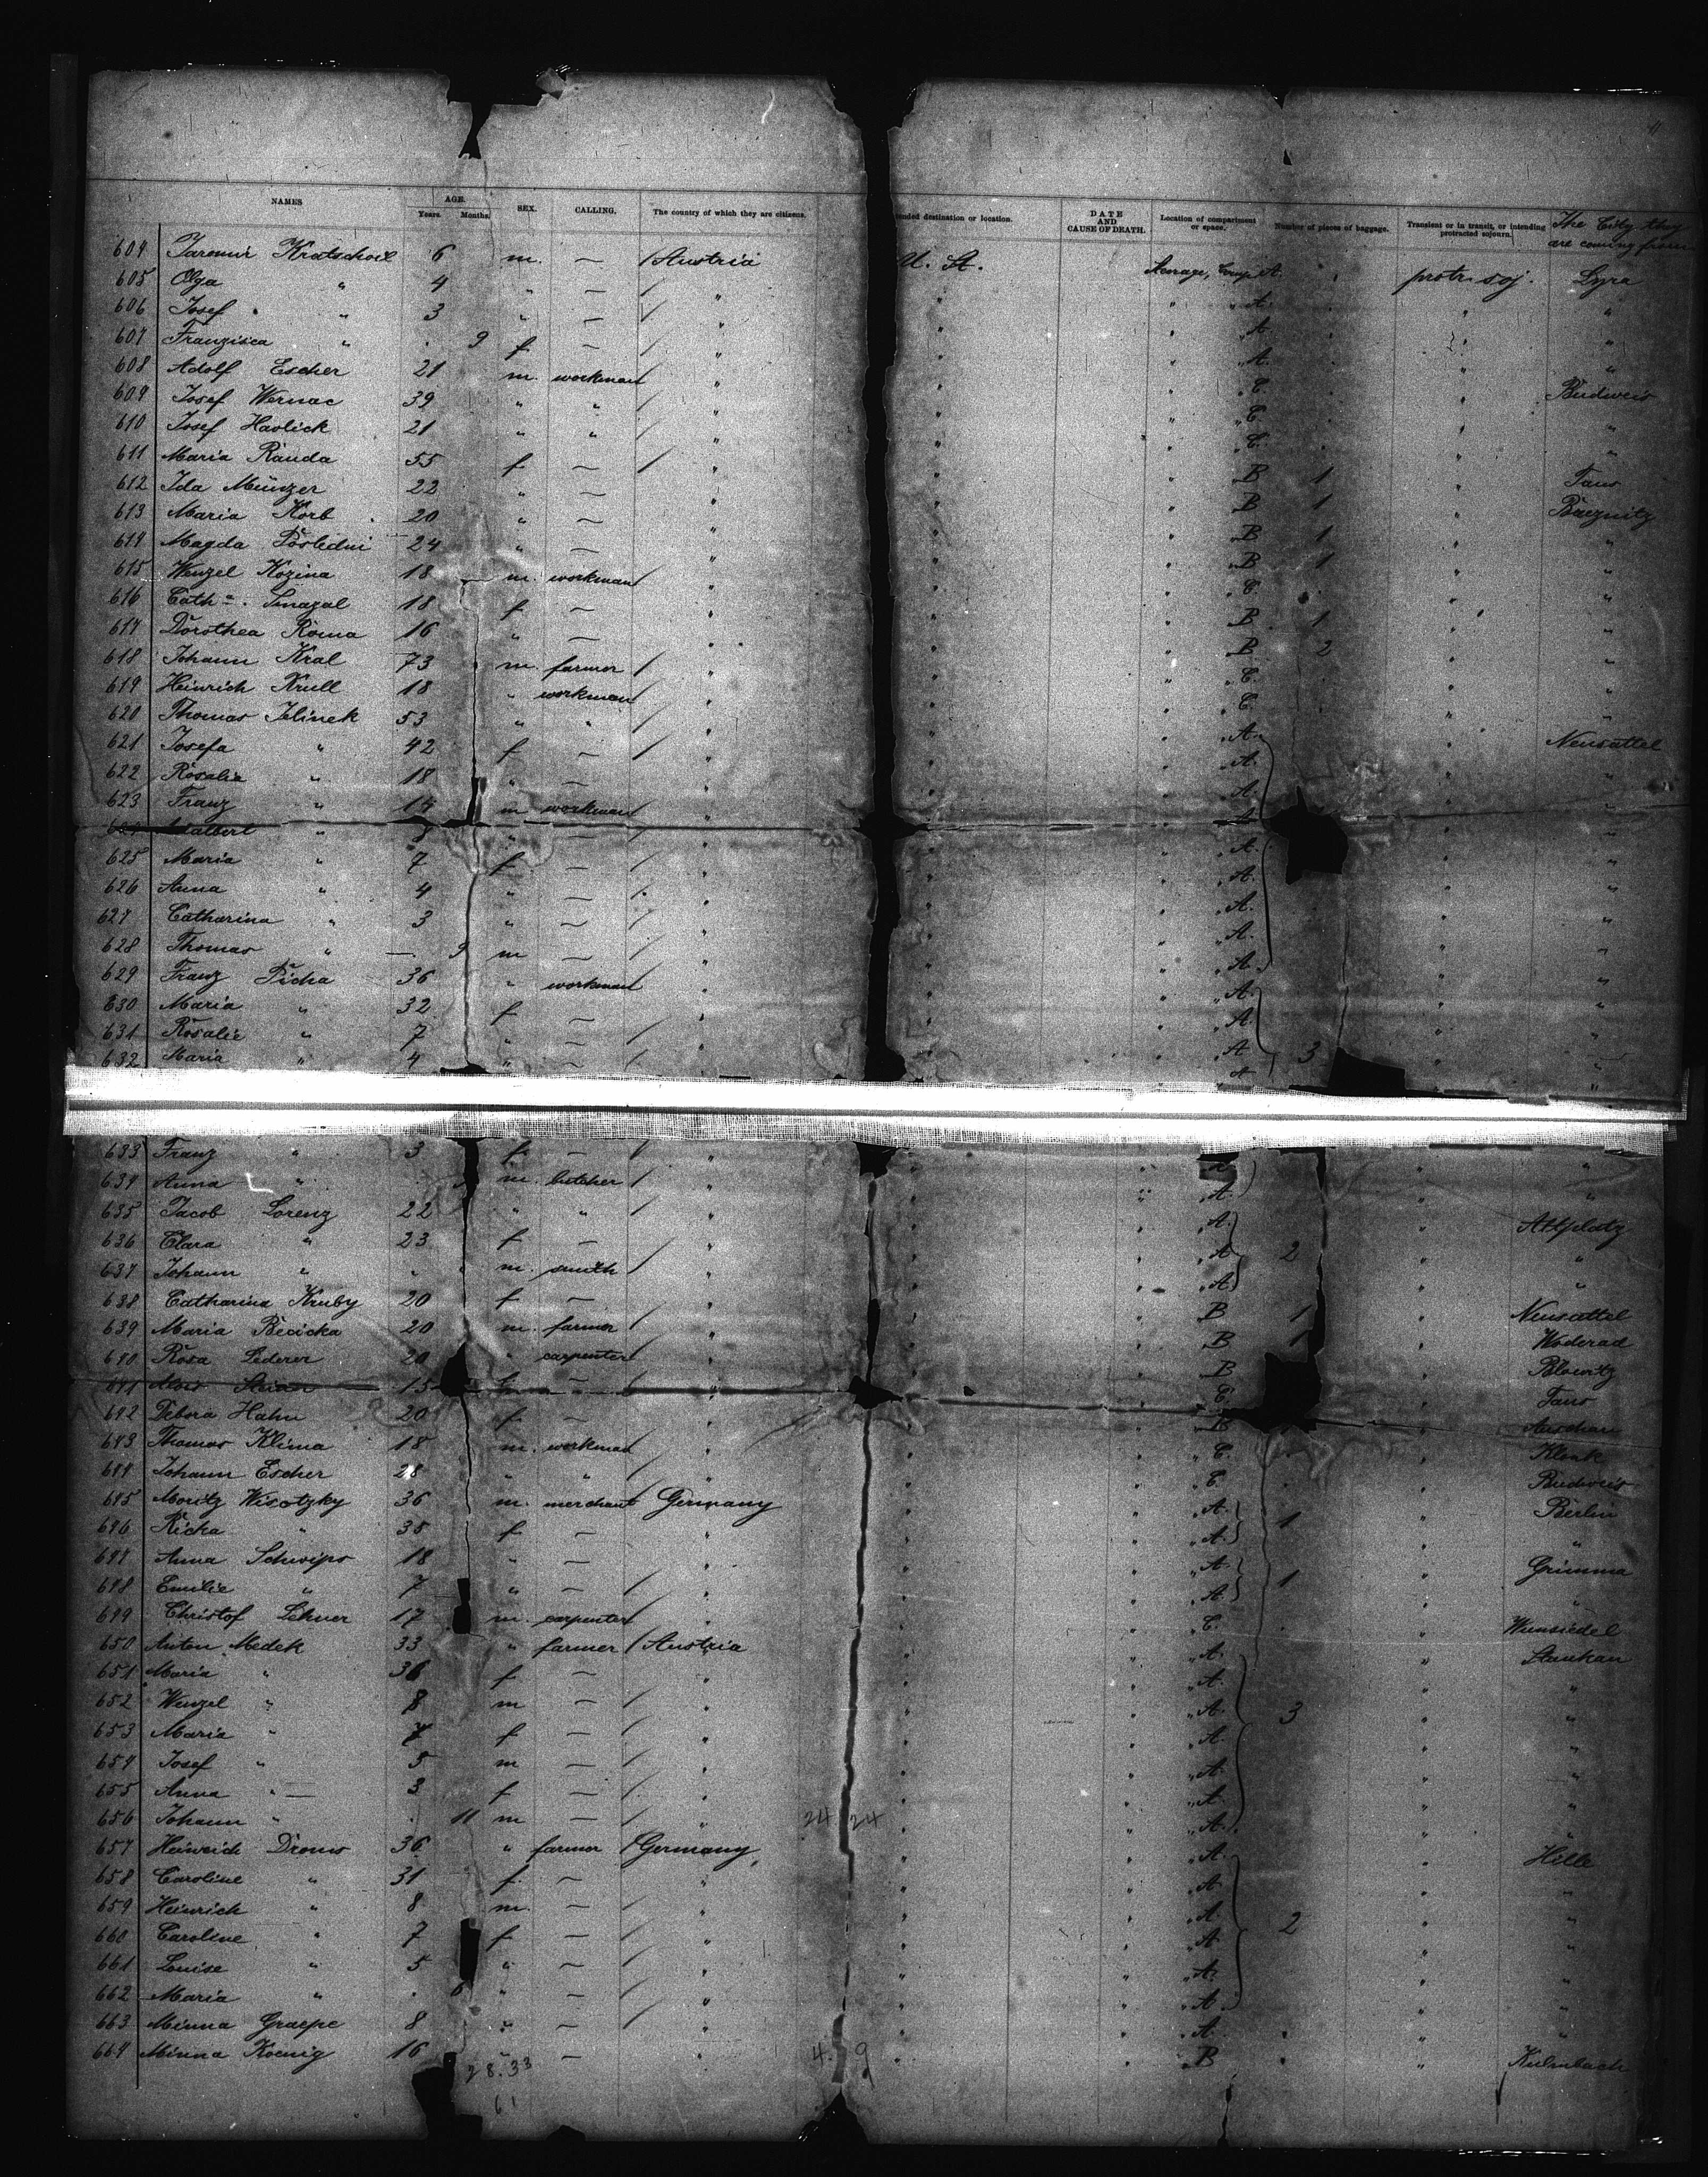 11
NAMES AGE. Years. Months. SEX. CALLING. The country of which they are citizens. ended destination or location. DATE AND CAUSE OF DEATH. Location of compartment or space. Number of pieces of baggage. Transient or in transit, or intending protracted sojourn. The City they are coming from
604 Jaromir Kratschoil 6 m. — / Austria U. St. Steerage, Comp. A. protr. soj. Lyra
605 Olga " 4 " — / " " " " A. " "
606 Josef " 3 " — / " " " " A. " "
607 Franzisca " 9 f — / " " " " A. " "
608 Adolf Escher 21 m. workman / " " " " C. " Budweis
609 Josef Wernac 39 " " / " " " " C. " "
610 Josef Havlick 21 " " / " " " " C. " "
611 Maria Randa 55 f — / " " " " B 1 " Taus
612 Ida Münzer 22 " — " " " " B 1 " Breznitz
613 Maria Korb 20 " — " " " " B 1 " "
614 Magda Posledni 24 " — " " " " B 1 " "
615 Wenzel Kozina 18 m. workman / " " " " C. " "
616 Cath. Smazal 18 f — " " " " B 1 " "
617 Dorothea Roma 16 " — " " " " B 2 " "
618 Johann Kral 73 m. farmer / " " " " C. " "
619 Heinrich Krull 18 " workman / " " " " C. " "
620 Thomas Jelinek 53 " " / " " " " A. " Neusattel
621 Josefa " 42 f — / " " " " A. " "
622 Rosalie " 18 " — " " " " A. " "
623 Franz " 14 m workman / " " " " A. " "
Adalbert " " — / " " " " A. " "
625 Maria " 7 f — / " " " " A. " "
626 Anna " 4 " — / " " " " A. " "
627 Catharina " 3 " — / " " " " A. " "
628 Thomas " — 9 m — / " " " " A. " "
629 Franz Picha 36 " workman / " " " " A. " "
630 Maria " 32 f — " " " " A. " "
631 Rosalie " 7 " — / " " " " A 3 " "
632 Maria " 4 " — / " " " " A " "
633 Franz " 3 f — / " " " " A " "
634 Anna " m. butcher / " " " " A. " "
635 Jacob Lorenz 22 " " / " " " " A. " Altplatz
636 Clara " 23 f — " " " " A 2 " "
637 Johann " " m. smith / " " " " A. " "
638 Catharina Kruby 20 f — " " " B 1 " Neusattel
639 Maria Becicka 20 m. farmer / " " " B 1 " Woderad
640 Rosa Lederer 20 " carpenter / " " " B " Blowitz
641 Alois 15 — / " " " C. " Taus
642 Debora Hahn 20 f — " " " B "
643 Thomas Klima 18 m. workman / " " " " C. " Klenk
644 Johann Escher 28 " " / " " " " C. " Budweis
645 Moritz Wisotzky 36 m. merchant Germany " " " A. 1 " Berlin
646 Ricka " 35 f — " " " " A. " "
647 Anna Schwips 18 " — " " " " A. 1 " Grimma
648 Emilie " 7 " — / " " " " A. " "
649 Christof Lehner 17 m. carpenter / " " " " C. " Wunsiedel
650 Anton Medek 33 " farmer / Austria " " " A. " Stankau
651 Maria " 36 f — " " " " A. " "
652 Wenzel " 8 m — / " " " " A. 3 " "
653 Maria " 7 f — / " " " " A. " "
654 Josef " 5 m — / " " " " A. " "
655 Anna " 3 f — / " " " " A. " "
656 Johann " 11 m — / " 24 24 " " " A. " "
657 Heinrich Drows 36 " farmer / Germany " " " A. " Hille
658 Caroline " 31 f. — " " " " A " "
659 Heinrich " 8 m. — / " " " " A 2 " "
660 Caroline " 7 f — / " " " " A " "
661 Louise " 5 " — / " " " " A. " "
662 Maria " 6 " — / " " " " A. " "
663 Minna Graepe 8 " — / " " " " A. " "
664 Minna Koenig 16 " — " " " B " Kulmbach
28.33 4 9
61